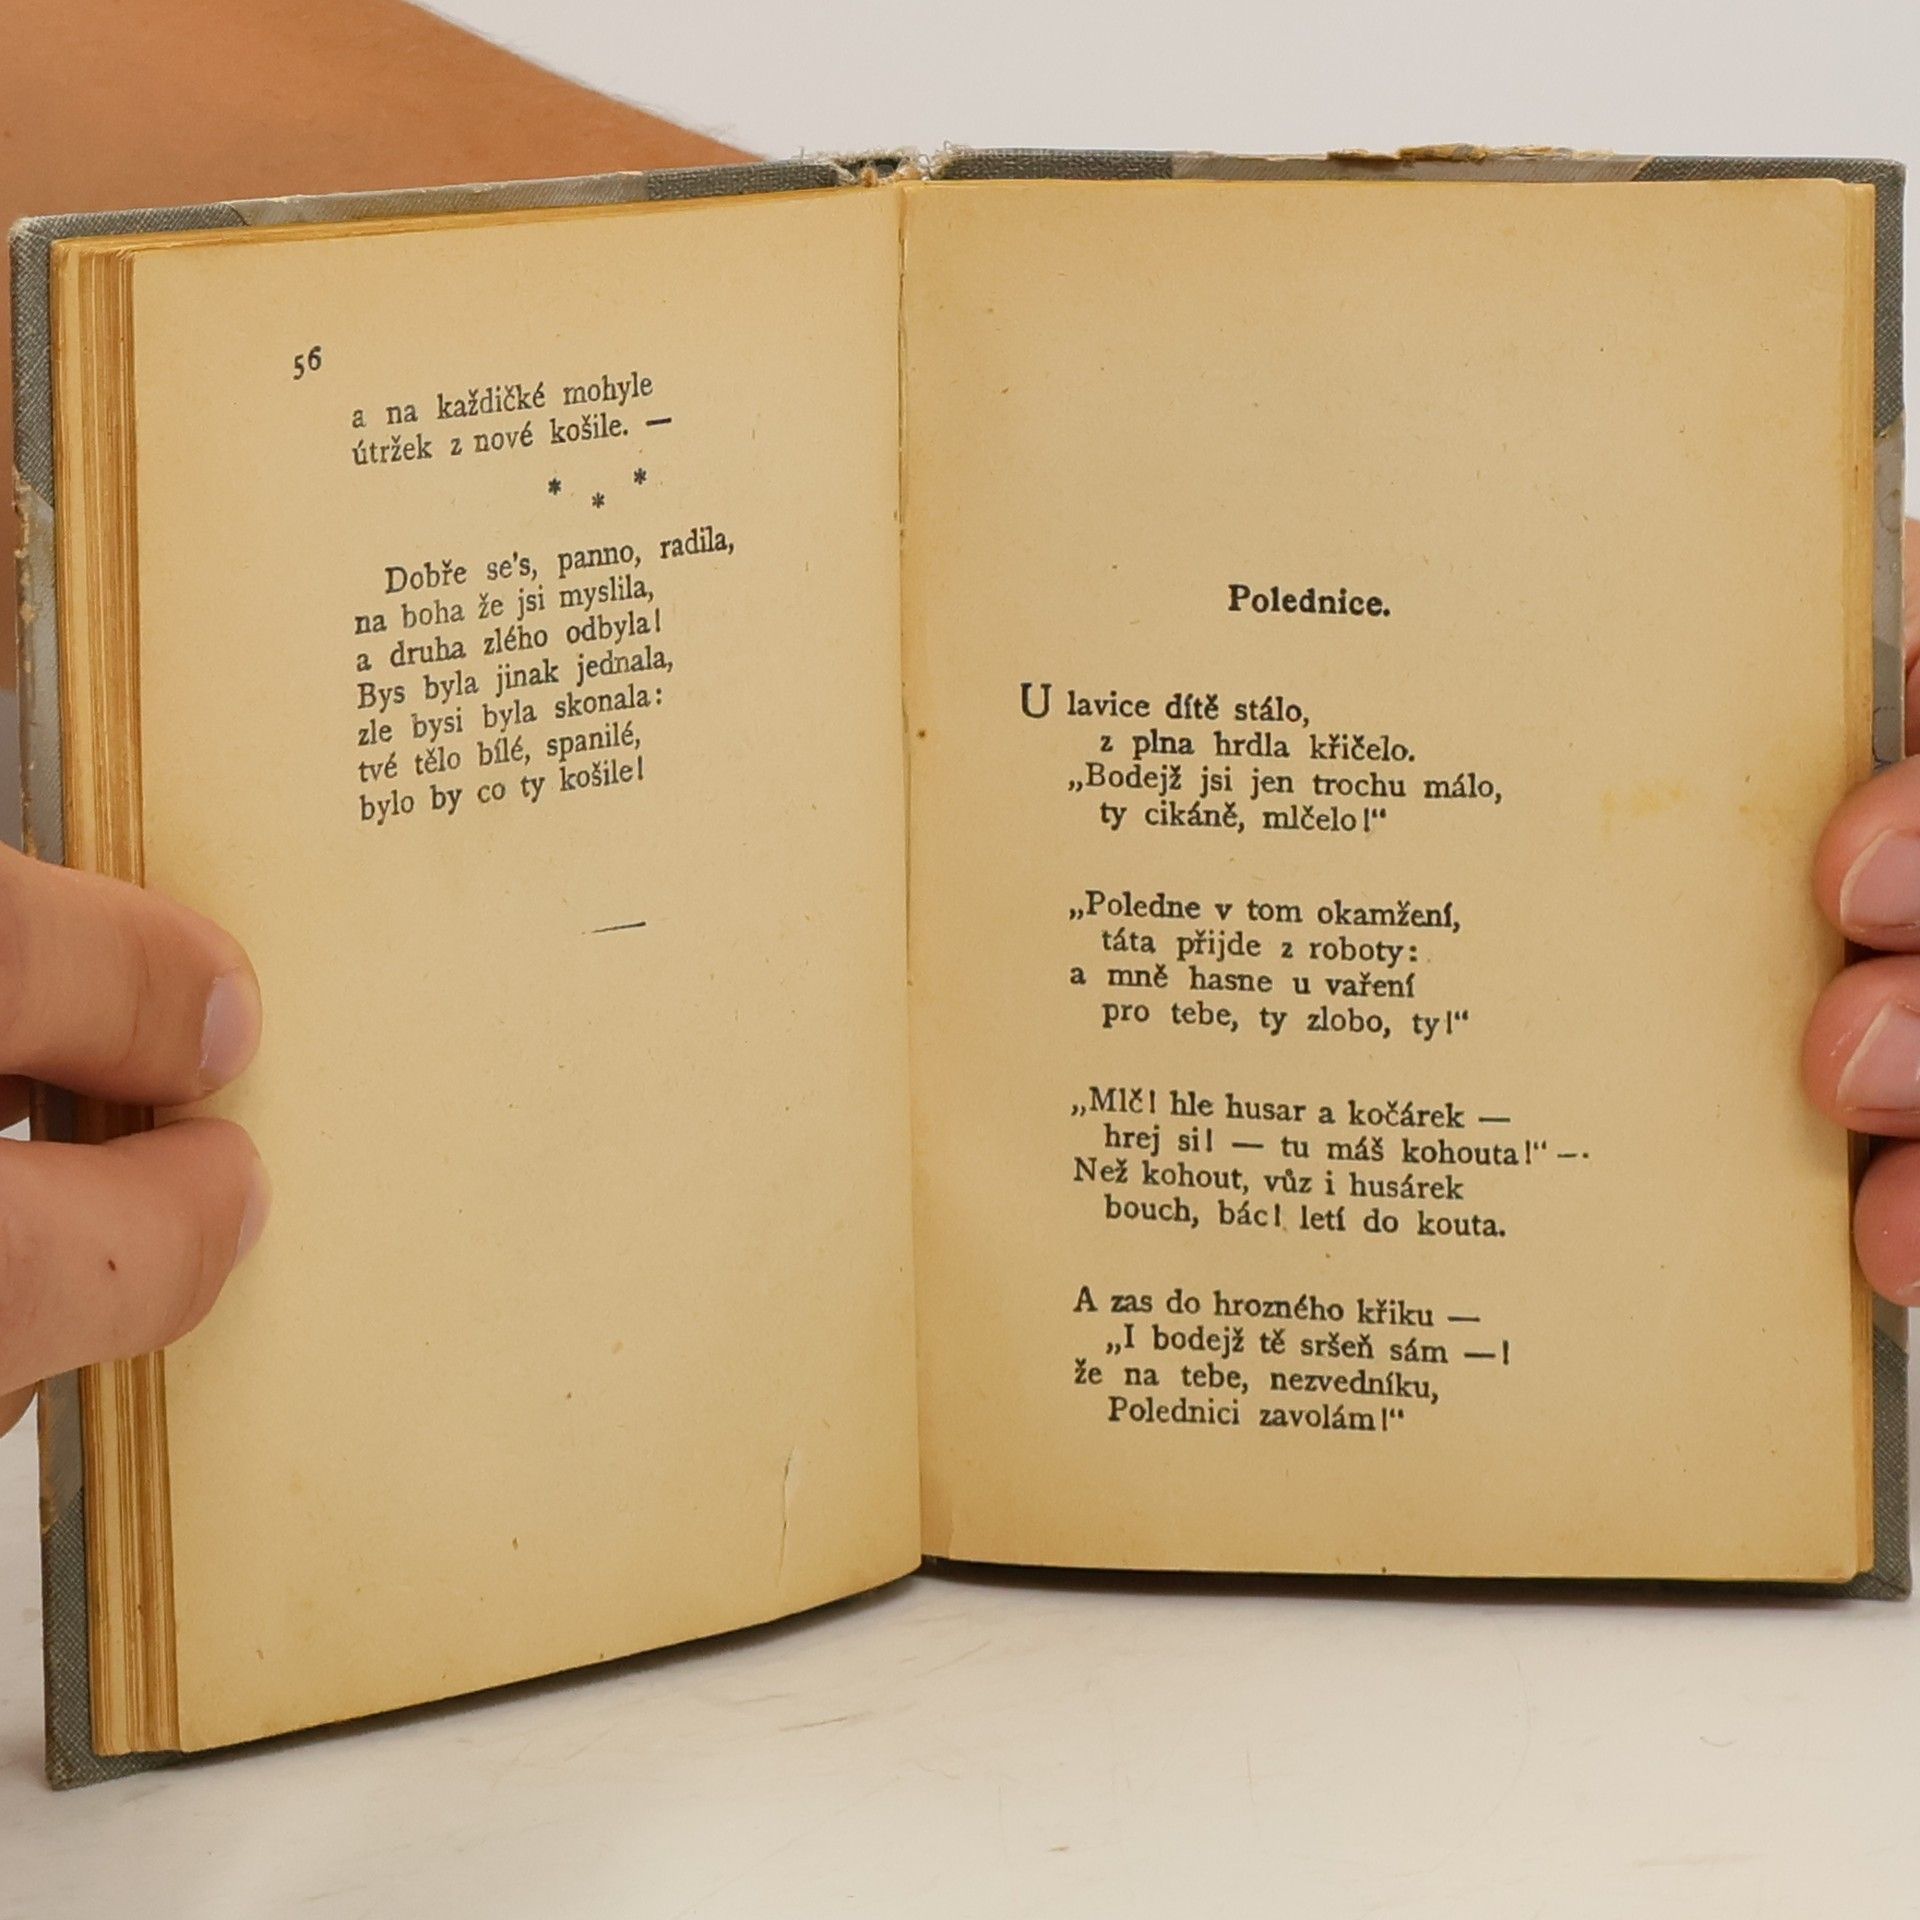 56
a na každičké mohyle
útržek z nové košile. —
* * *
Dobře se's, panno, radila,
na boha že jsi myslila,
a druha zlého odbyla!
Bys byla jinak jednala,
zle bysi byla skonala:
tvé tělo bílé, spanilé,
bylo by co ty košile!
Polednice.
U lavice dítě stálo,
z plna hrdla křičelo.
„Bodejž jsi jen trochu málo,
ty cikáně, mlčelo!“
„Poledne v tom okamžení,
táta přijde z roboty:
a mně hasne u vaření
pro tebe, ty zlobo, ty!“
„Mlč! hle husar a kočárek —
hrej si! — tu máš kohouta!“ —·
Než kohout, vůz i husárek
bouch, bác! letí do kouta.
A zas do hrozného křiku —
„I bodejž tě sršeň sám —!
že na tebe, nezvedníku,
Polednici zavolám!“